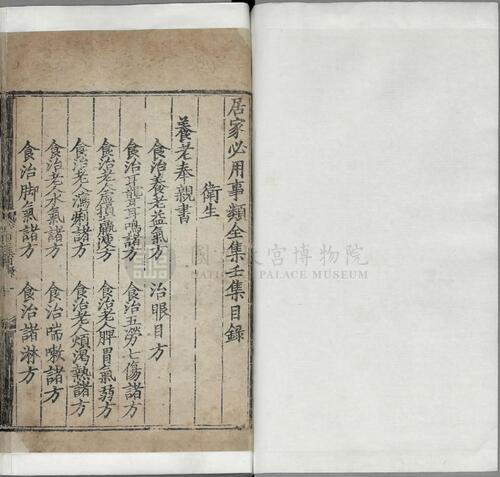 居家必用事類全集壬集目錄
衛生
養老奉親書
食治養老益氣方 治眼目方
食治耳聾耳鳴諸方 食治五勞七傷諸方
食治老人虛損羸瘦方 食治老人脾胃氣弱方
食治老人瀉痢諸方 食治老人煩渴熱諸方
食治老人水氣諸方 食治喘嗽諸方
食治脚氣諸方 食治諸淋方
國立故宮博物院
NATIONAL PALACE MUSEUM